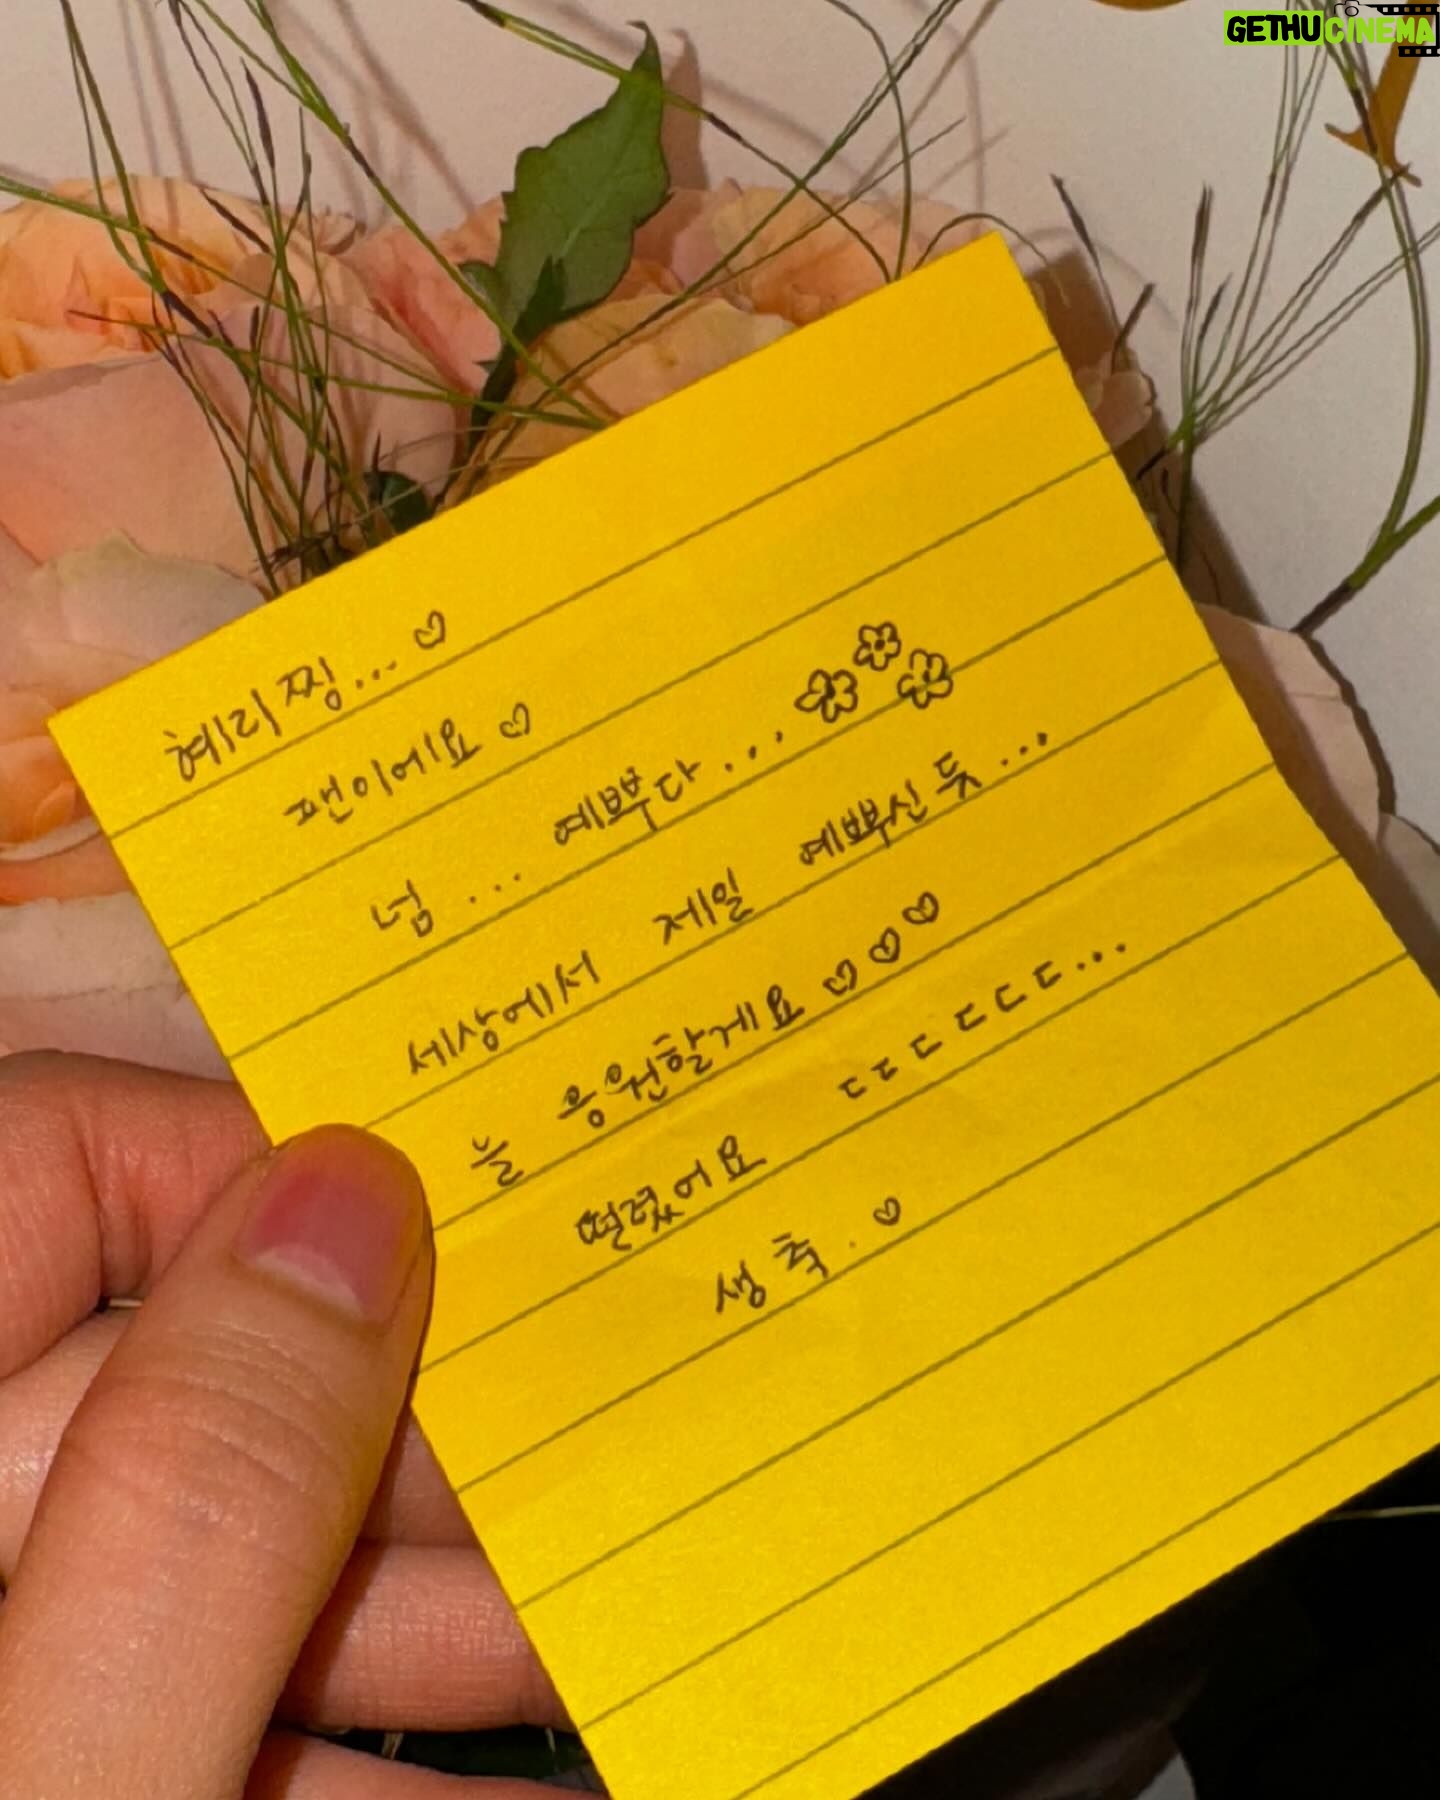 GETHUCINEMA
혜리찡... ♡
팬이에요 ♡
넘 ... 예쁘다 ...
세상에서 제일 예쁘신 듯 ...
늘 응원할게요 ♡♡♡
떨렸어요 ㄷㄷㄷㄷㄷㄷ...
생축. ♡